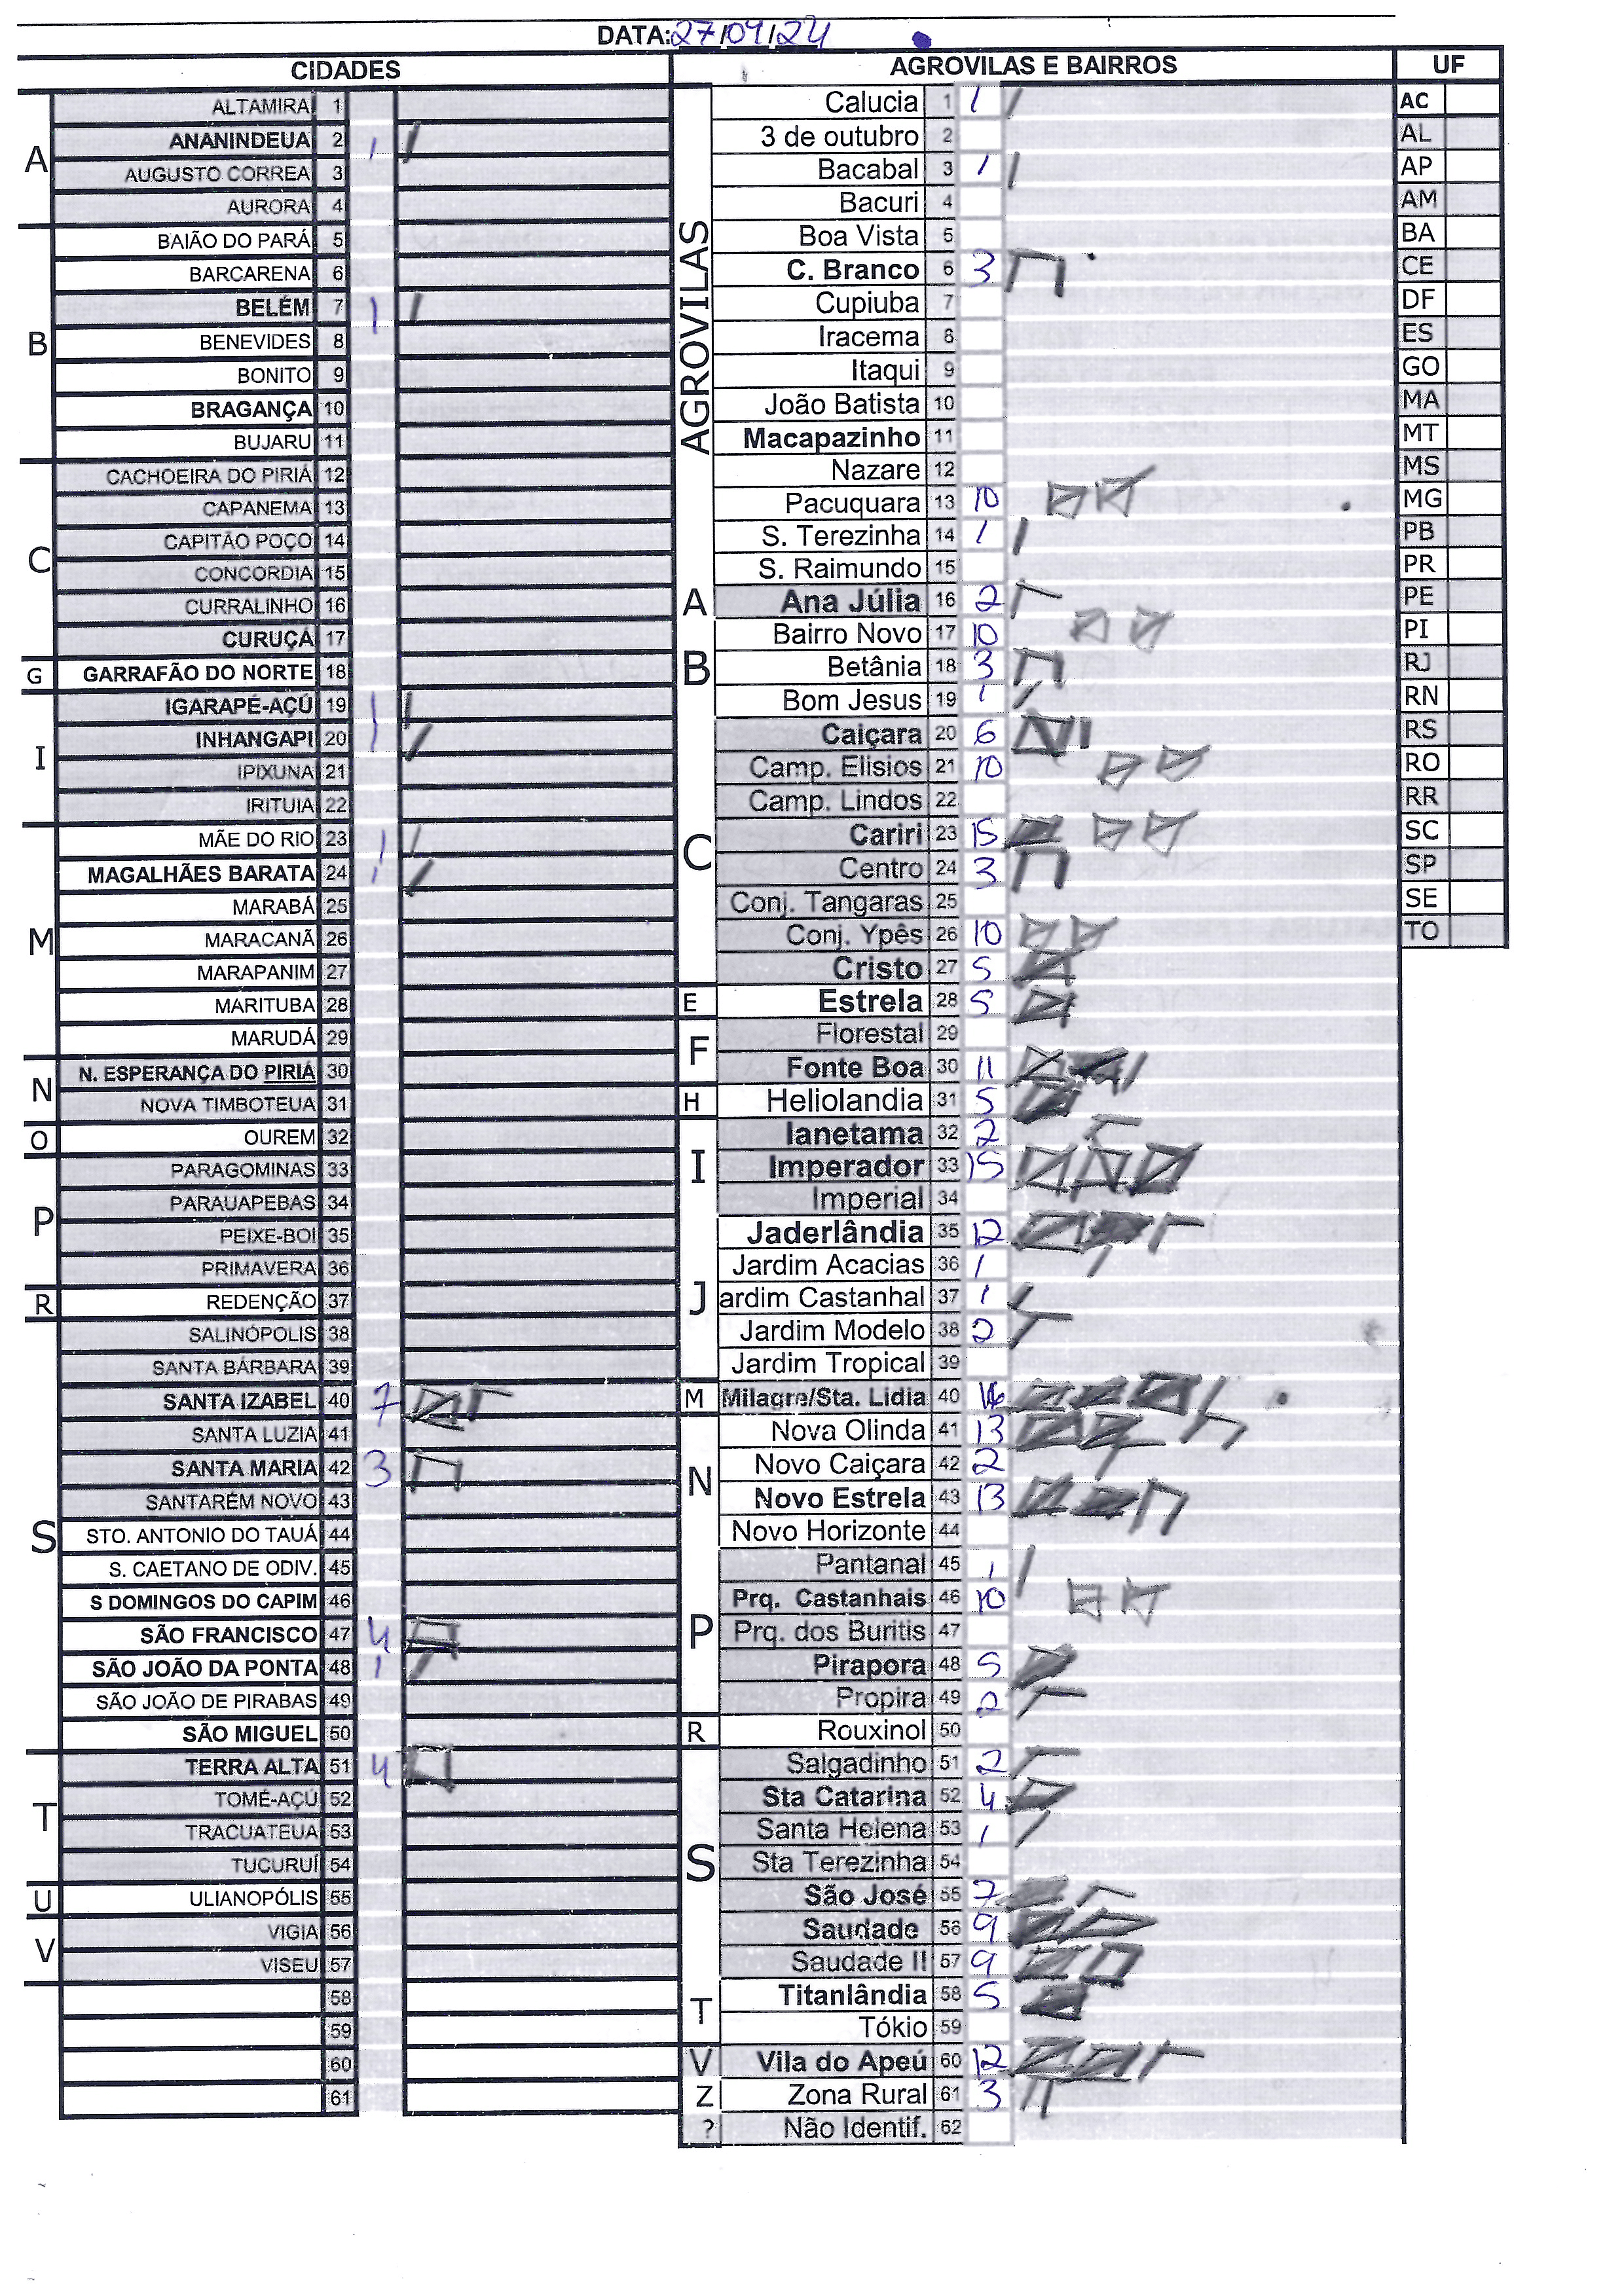 DATA: 27/09/24
CIDADES
A
ALTAMIRA 1
ANANINDEUA 2 1
AUGUSTO CORREA 3
AURORA 4
B
BAIÃO DO PARÁ 5
BARCARENA 6
BELÉM 7 1
BENEVIDES 8
BONITO 9
BRAGANÇA 10
BUJARU 11
C
CACHOEIRA DO PIRIÁ 12
CAPANEMA 13
CAPITÃO POÇO 14
CONCORDIA 15
CURRALINHO 16
CURUÇÁ 17
G
GARRAFÃO DO NORTE 18
I
IGARAPÉ-AÇÚ 19 1
INHANGAPI 20 1
IPIXUNA 21
IRITUIA 22
M
MÃE DO RIO 23 1
MAGALHÃES BARATA 24 1
MARABÁ 25
MARACANÃ 26
MARAPANIM 27
MARITUBA 28
MARUDÁ 29
N
N. ESPERANÇA DO PIRIÁ 30
NOVA TIMBOTEUA 31
O
OUREM 32
P
PARAGOMINAS 33
PARAUAPEBAS 34
PEIXE-BOI 35
PRIMAVERA 36
R
REDENÇÃO 37
S
SALINÓPOLIS 38
SANTA BÁRBARA 39
SANTA IZABEL 40 7
SANTA LUZIA 41
SANTA MARIA 42 3
SANTARÉM NOVO 43
STO. ANTONIO DO TAUÁ 44
S. CAETANO DE ODIV. 45
S DOMINGOS DO CAPIM 46
SÃO FRANCISCO 47 4
SÃO JOÃO DA PONTA 48 1
SÃO JOÃO DE PIRABAS 49
SÃO MIGUEL 50
T
TERRA ALTA 51 4
TOMÉ-AÇÚ 52
TRACUATEUA 53
TUCURUÍ 54
U
ULIANOPÓLIS 55
V
VIGIA 56
VISEU 57
58
59
60
61
AGROVILAS E BAIRROS
AGROVILAS
Calucia 1 1
3 de outubro 2
Bacabal 3 1
Bacuri 4
Boa Vista 5
C. Branco 6 3
Cupiuba 7
Iracema 8
Itaqui 9
João Batista 10
Macapazinho 11
Nazare 12
Pacuquara 13 10
S. Terezinha 14 1
S. Raimundo 15
A
Ana Júlia 16 2
B
Bairro Novo 17 10
Betânia 18 3
Bom Jesus 19 1
C
Caiçara 20 6
Camp. Elisios 21 10
Camp. Lindos 22
Cariri 23 15
Centro 24 3
Conj. Tangaras 25
Conj. Ypês 26 10
Cristo 27 5
E
Estrela 28 5
F
Florestal 29
Fonte Boa 30 11
H
Heliolandia 31 5
I
Ianetama 32 2
Imperador 33 15
Imperial 34
J
Jaderlândia 35 12
Jardim Acacias 36 1
ardim Castanhal 37 1
Jardim Modelo 38 2
Jardim Tropical 39
M
Milagre/Sta. Lidia 40
N
Nova Olinda 41 13
Novo Caiçara 42 2
Novo Estrela 43 13
Novo Horizonte 44
P
Pantanal 45 1
Prq. Castanhais 46 10
Prq. dos Buritis 47
Pirapora 48 5
Propira 49 2
R
Rouxinol 50
S
Salgadinho 51 2
Sta Catarina 52 4
Santa Helena 53 1
Sta Terezinha 54
São José 55 7
Saudade 56 9
Saudade II 57 9
T
Titanlândia 58 5
Tókio 59
V
Vila do Apeú 60 12
Z
Zona Rural 61 3
?
Não Identif. 62
UF
AC
AL
AP
AM
BA
CE
DF
ES
GO
MA
MT
MS
MG
PB
PR
PE
PI
RJ
RN
RS
RO
RR
SC
SP
SE
TO